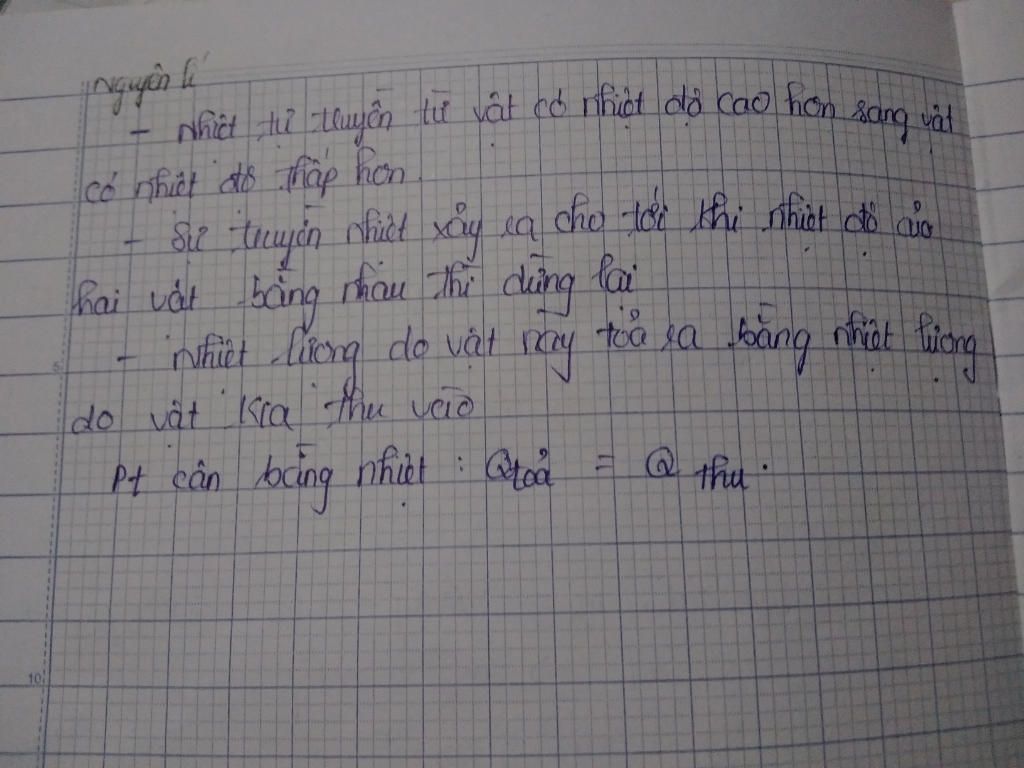 Nguyên lí
- Nhiệt tự truyền từ vật có nhiệt độ cao hơn sang vật
có nhiệt độ thấp hơn.
- Sự truyền nhiệt xảy ra cho tới khi nhiệt độ của
hai vật bằng nhau thì dừng lại
- Nhiệt lượng do vật này toả ra bằng nhiệt lượng
do vật kia thu vào
Pt cân bằng nhiệt : Qtoả = Q thu.
10